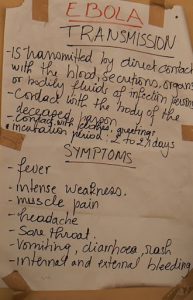 EBOLA
TRANSMISSION
-IS transmitted by direct contact
with the blood, secutions, organs
or bodily fluids of infection person
- Contact with the body of the
deceased person
- contact with clothes, greetings
• incubation period: 2 to 21 days
SYMPTOMS
- fever
- intense weakness.
- muscle pain
- headache
- Sore throat.
- Vomiting, diarrhoea, rash
- internal and external bleeding